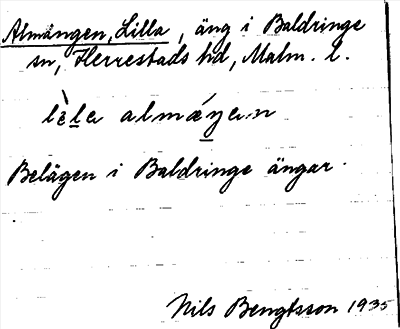 Almängen, Lilla, äng i Baldringe
sn, Herrestads hd, Malm. l.
lè̱la almǽŋan
Belägen i Baldringe ängar.
Nils Bengtsson 1935